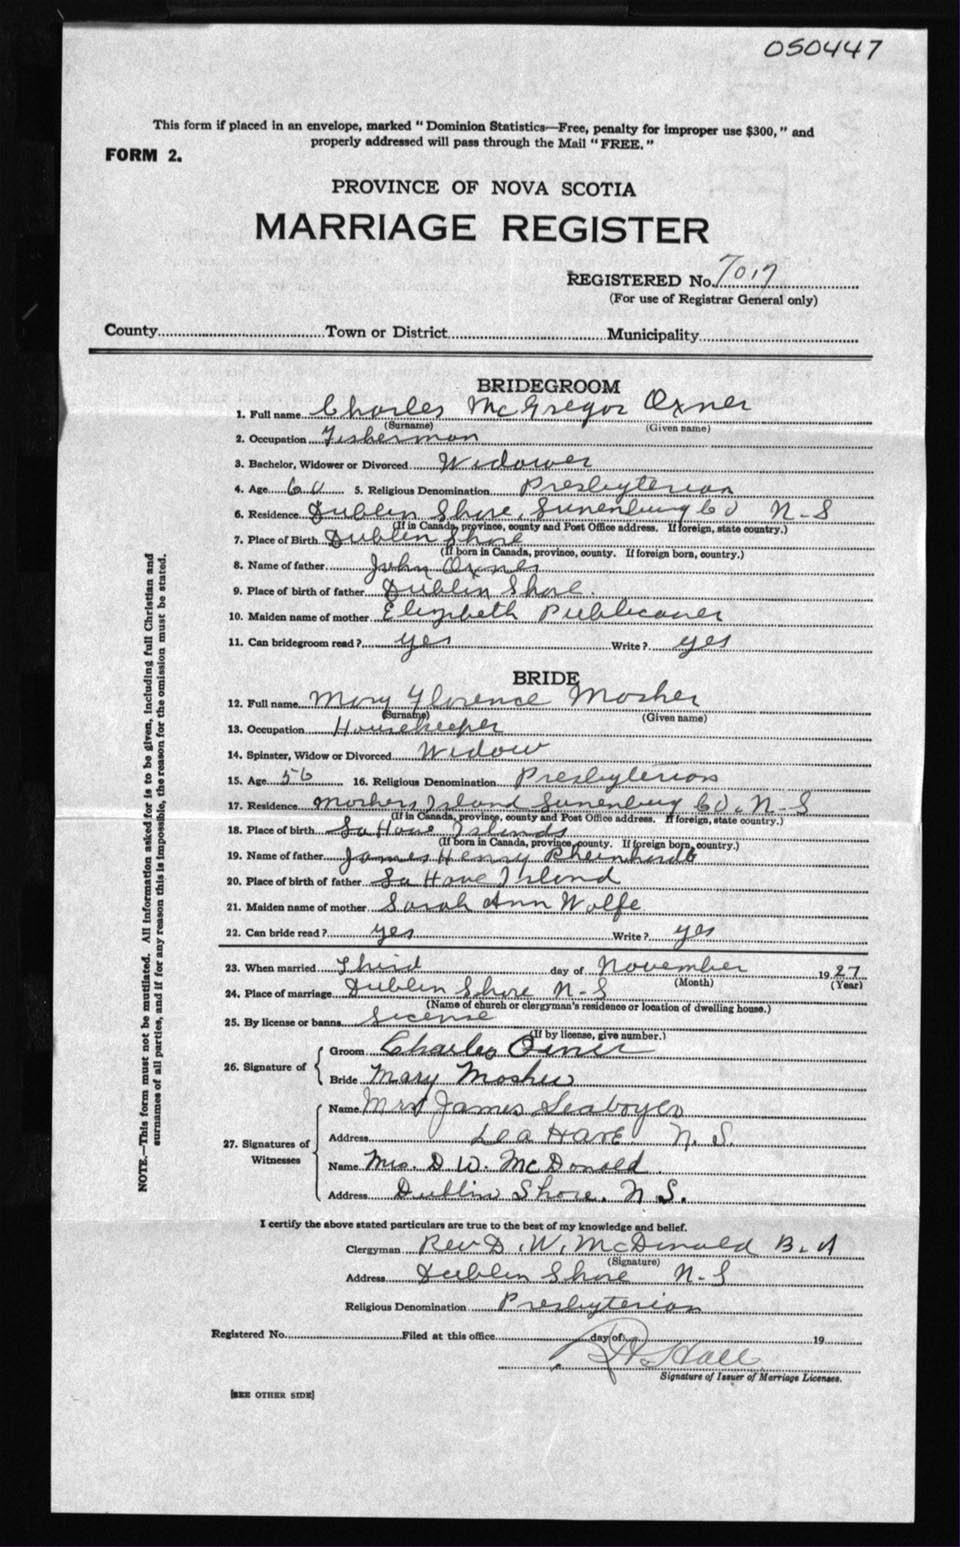 050447
This form if placed in an envelope, marked "Dominion Statistics—Free, penalty for improper use $300," and
properly addressed will pass through the Mail "FREE."
FORM 2.
PROVINCE OF NOVA SCOTIA
MARRIAGE REGISTER
REGISTERED No. 7017
(For use of Registrar General only)
County Town or District Municipality
BRIDEGROOM
1. Full name Charles McGregor Oxner
(Surname) (Given name)
2. Occupation Fisherman
3. Bachelor, Widower or Divorced Widower
4. Age 60 5. Religious Denomination Presbyterian
6. Residence Dublin Shore, Lunenburg Co N-S
(If in Canada, province, county and Post Office address. If foreign, state country.)
7. Place of Birth Dublin Shore
(If born in Canada, province, county. If foreign born, country.)
8. Name of father John Oxner
9. Place of birth of father Dublin Shore.
10. Maiden name of mother Elizabeth Publicover
11. Can bridegroom read? yes Write? yes
BRIDE
12. Full name Mary Florence Mosher
(Surname) (Given name)
13. Occupation Housekeeper
14. Spinster, Widow or Divorced Widow
15. Age 56 16. Religious Denomination Presbyterian
17. Residence Moshers Island Lunenburg Co. N-S
(If in Canada, province, county and Post Office address. If foreign, state country.)
18. Place of birth La Have Islands
(If born in Canada, province, county. If foreign born, country.)
19. Name of father James Henry
20. Place of birth of father La Have Island
21. Maiden name of mother Sarah Ann Wolfe
22. Can bride read? yes Write? yes
23. When married Third day of November 1927
(Month) (Year)
24. Place of marriage Dublin Shore N-S
(Name of church or clergyman's residence or location of dwelling house.)
25. By license or banns License
(If by license, give number.)
26. Signature of
Groom Charles Oxner
Bride Mary Mosher
27. Signatures of Witnesses
Name Mrs James Seaboyer
Address Lea Have N.S.
Name Mrs. D W. McDonald
Address Dublin Shore. N S.
I certify the above stated particulars are true to the best of my knowledge and belief.
Clergyman Rev D. W. McDonald B.A
(Signature)
Address Dublin Shore N-S
Religious Denomination Presbyterian
Registered No. Filed at this office day of 19
Hall
Signature of Issuer of Marriage Licenses.
[SEE OTHER SIDE]
NOTE.—This form must not be mutilated. All information asked for is to be given, including full Christian and
surnames of all parties, and if for any reason this is impossible, the reason for the omission must be stated.